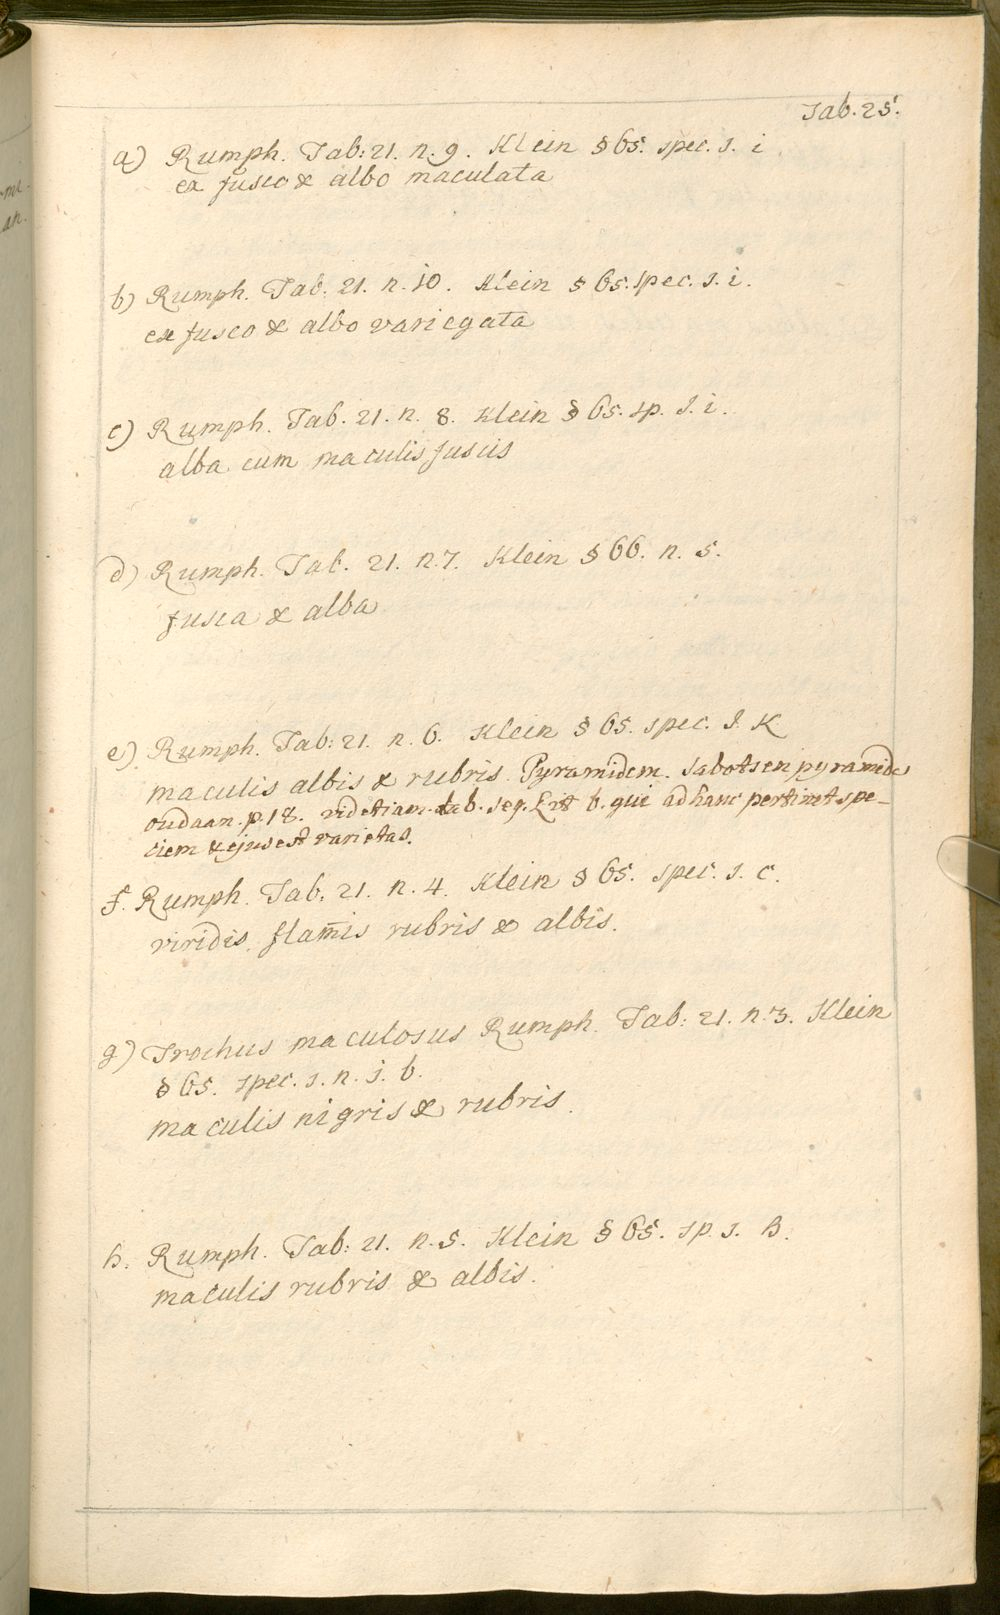 Tab. 25.
a) Rumph. Tab: 21. n. 9. Klein § 65. spec. 1. i
ex fusco & albo maculata
b) Rumph. Tab. 21. n. 10. Klein § 65. spec. 1. i.
ex fusco & albo variegata
c) Rumph. Tab. 21. n. 8. Klein § 65. sp. 1. i.
alba cum maculis fuscis
d) Rumph. Tab. 21. n. 7. Klein § 66. n. 5.
fusca & alba
e) Rumph. Tab: 21. n. 6. Klein § 65. spec. 1. K
maculis albis & rubris. Pyramidem. Sabots en pyramide
oudaan. p. 18. vid etiam tab. seq. Litt b. que ad hanc pertinet spe-
ciem & ejus est varietas.
f. Rumph. Tab. 21. n. 4. Klein § 65. spec. 1. c.
viridis flam̄is rubris & albis.
g) Trochus maculosus Rumph. Tab: 21. n. 3. Klein
§ 65. spec. 1. n. 1. b.
maculis nigris & rubris.
h. Rumph. Tab: 21. n. 5. Klein § 65. sp. 1. h.
maculis rubris & albis.